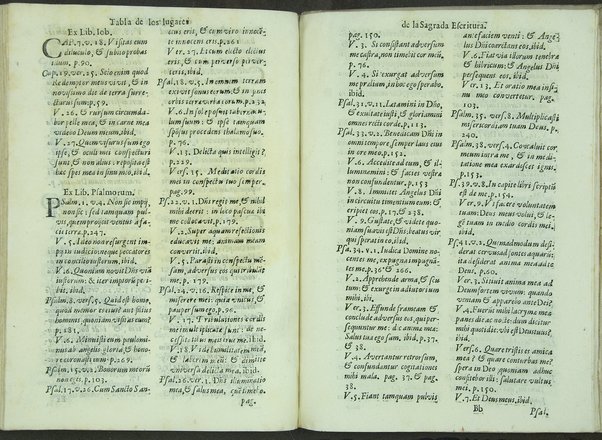 Tabla de los lugares
Ex Lib. Iob.
CAP. 7. v. 18. Visitas eum
diluculo, & subito probas
illum, p. 90.
Cap. 19. ver. 25. Scio enim quod
Redemptor meus vivit, & in
novissimo die de terra surre-
cturus sum, p. 59.
V. 26. Et rursum circumda-
bor pelle mea, & in carne mea
videbo Deum meum, ibid.
V. 27. Quem visurus sum ego
ipse, & oculi mei conspecturi
sunt & non alius: reposita est
hæc spes mea in sinu meo, ibid.
Ex Lib. Psalmorum.
Psalm. 1. v. 4. Non sic impij,
non sic: sed tamquam pul-
vis, quem projicit ventus à fa-
cie terræ, p. 247.
V. 5. Ideo non resurgent im-
pij in iudicio: neque peccatores
in concilio iustorum, ibid.
V. 6. Quoniam novit Dñs viam
iustorum: & iter impiorum pe-
ribit, ibid.
Psalm. 8. vers. 5. Quid est homo,
quod memor es eius? aut filius
hominis, quoniam visitas eum?
p. 181.
V. 6. Minuisti eum paulominus
ab angelis, gloria, & honore
coronasti eum, ibid.
Psalm. 15. v. 2. Bonorum meorum
non eges, p. 103.
Psal. 17. v. 26. Cum Sancto San-
ctus eris, & cum viro innocen-
te innocens eris, p. 261.
Ver. 27. Et cum electo electus
eris, & cum perverso perver-
teris, ibid.
Psal. 18. v. 5. In omnem terram
exivit sonus eorum: & in fines
orbis terræ verba eorum. p. 232.
V. 6. In sole posuit tabernacu-
lum suum: & ipse tamquam
sponsus procedens de thalamo suo,
p. 76.
V. 13. Delicta quis intelligit?,
p. 229.
Vers. 15. Meditatio cordis
mei in conspectu tuo semper,
pag. 99.
Psal. 22. v. 1. Dñs regit me, & nihil
mihi deerit: in loco pascuæ ibi
me collocavit, p. 179.
V. 2. Super aquam refectionis
educavit me, animam meam
convertit, ibid.
V. 5. Parasti in conspectu me
mensam, adversus eos qui tribulãt
me, p. 179.
Psal. 24. v. 16. Respice in me, &
miserere mei: quia unicus, &
pauper sum ego, p. 96.
V. 17. Tribulationes cordis
mei multiplicatæ sunt: de ne-
cessitatibus meis erue me, ibid.
V. 18. Vide humilitatem meã,
& laborem meũ: & dimitte
universa delicta mea, ibid.
Psal. 26. ver. 1. Dñs illuminatio
mea, & salus mea, quem timebo,
pag.
de la Sagrada Escritura.
pag. 150.
V. 3. Si consistant adversum
me castra, non timebit cor meũ,
p. 76.
V. 4. Si exurgat adversum
me prælium, in hoc ego sperabo,
ibid.
Psal. 31. v. 11. Lætamini in Dño,
& exultate iusti, & gloriamini
omnes recti corde, p. 113.
Psal. 33. v. 2. Benedicam Dñũ in
omni tempore semper laus eius
in ore meo, p. 152.
V. 6. Accedite ad eum, & illu-
minamini: & facies vestræ
non confundentur, p. 153
V. 8. Immittet Angelus Dñi
in circuitu timentium eum: &
eripiet eos, p. 17, & 238.
V. 9. Gustate & videte, quoniam
suavis est Dñs, beatus vir
qui sperat in eo, ibid.
Psal. 34. v. 1. Iudica Domine no-
centes me, expugna impugnan-
tes me, p. 36 & 266.
V. 2. Apprehende arma, & scu-
tum: & exurge in adiutorium
mihi, ibi.
Ver. 3. Effunde frameam &
conclude adversus eos, qui per-
sequuntur me: dic animæ meæ:
Salus tua ego sum, ibid. p. 37.
& 38.
V. 4. Avertantur retrorsum,
& confundantur cogitationes
mihi mala. pag. 37. & pag.
38.
V. 5. Fiant tamquam pulvis
ante faciem venti: & Angelus
Dñi coarctans eos, ibid.
V. 6. Fiat via illorum tenebræ
& lubricum: & Angelus Dñi
persequens eos, ibid.
Ver. 13. Et oratio mea in si-
nu meo convertetur, pag.
103.
Psal. 35. vers. 8. Multiplicasti
misericordiam tuam Deus, p.
240.
Psalm. 38. vers. 4. Concaluit cor
meum intra me, & in medita-
tione mea exardescet ignis.
p. 153.
Psal. 39. v. 8. In capite libri scriptũ
est de me, p. 154.
Ver. 9. Vt facerem voluntatem
tuam: Deus meus volui, & le-
gem tuam in medio cordis mei,
ibid.
Psal. 41. v. 2. Quemadmodum desi-
derat cervus ad fontes aquarũ:
ita desiderat anima mea ad te
Deus, p. 60.
Ver. 3. Sitivit anima mea ad
Deum fortem vivum: quando
veniam & apparebo ante Dei?
V. 4. Fuerũt mihi lacrymæ meæ
panes die ac nocte: dum dicitur
mihi quotidie, ubi est Deus tuus?
ibi.
Vers. 6. Quare tristis es anima
mea? & quare conturbas me?
spera in Deo quoniam adhuc
confitebor illi: salutare vultus
mei, p. 150.
V. 7. Et Deus meus, ibid.
Bb
Psal.